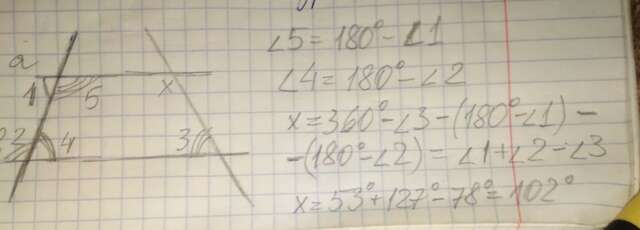 a
1
5
x
2
4
3
∠5 = 180° - ∠1
∠4 = 180° - ∠2
x = 360° - ∠3 - (180° - ∠1) -
- (180° - ∠2) = ∠1 + ∠2 - ∠3
x = 53° + 127° - 78° = 102°